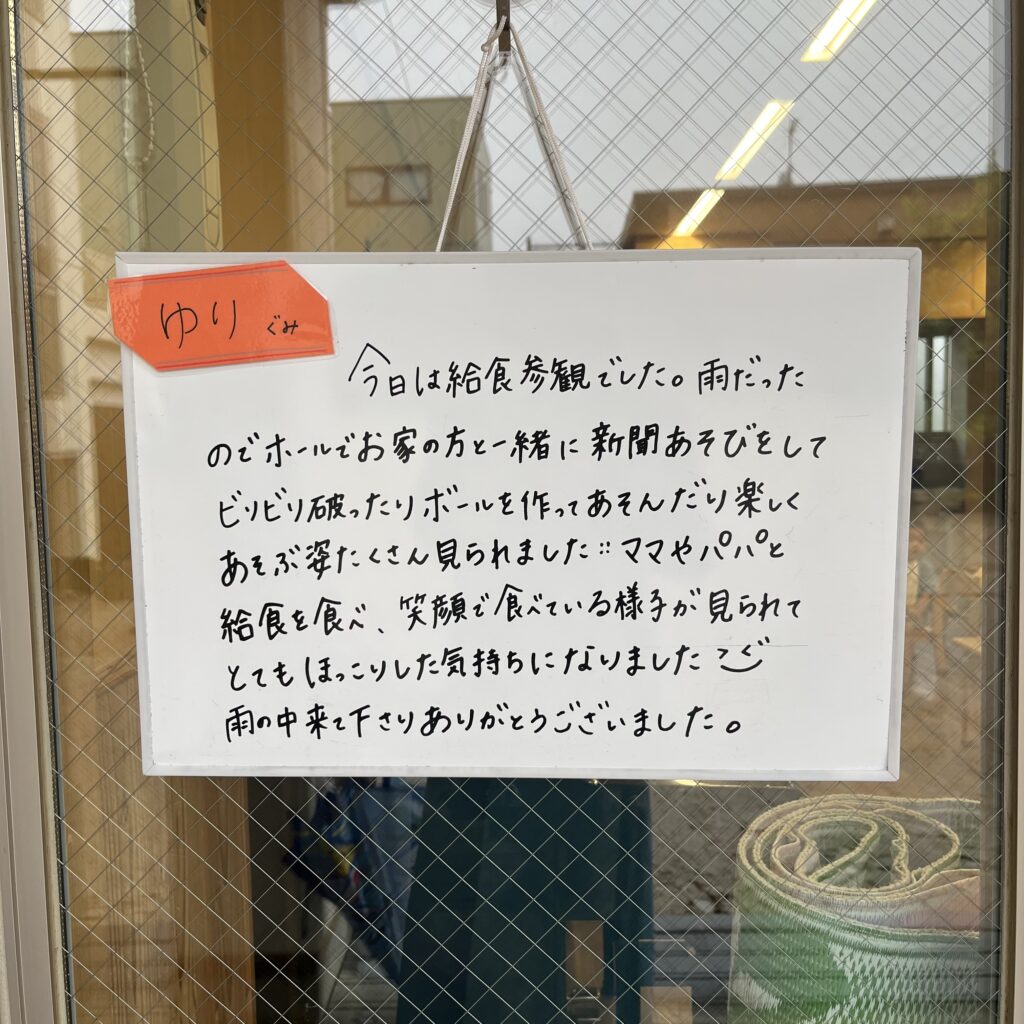 ゆり ぐみ
今日は給食参観でした。雨だった
のでホールでお家の方と一緒に新聞あそびをして
ビリビリ破ったりボールを作ってあそんだり楽しく
あそぶ姿たくさん見られました¨ママやパパと
給食を食べ、笑顔で食べている様子が見られて
とてもほっこりした気持ちになりました
雨の中来て下さりありがとうございました。